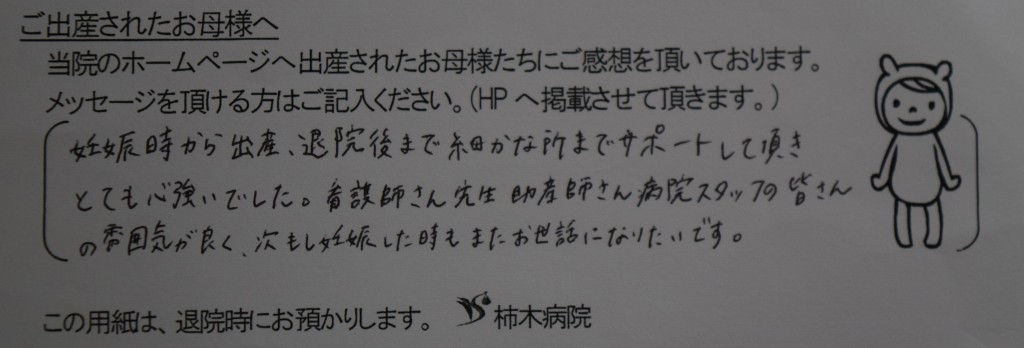 ご出産されたお母様へ
当院のホームページへ出産されたお母様たちにご感想を頂いております。
メッセージを頂ける方はご記入ください。（HPへ掲載させて頂きます。）
妊娠時から出産、退院後まで細かな所までサポートして頂き
とても心強いでした。看護師さん先生助産師さん病院スタッフの皆さん
の雰囲気が良く、次もし妊娠した時もまたお世話になりたいです。
この用紙は、退院時にお預かりします。 柿木病院